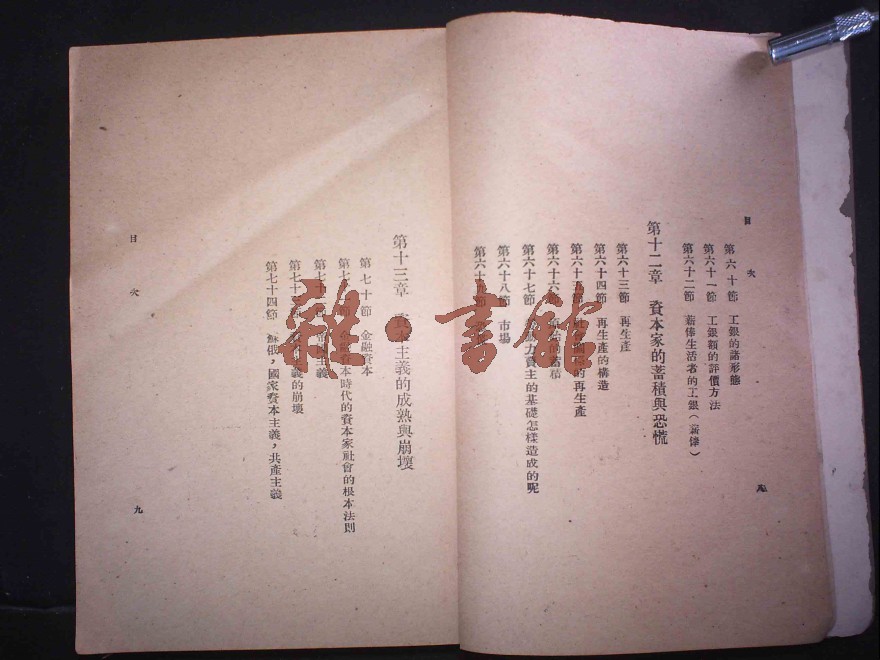 目次
第六十節 工銀的諸形態
第六十一節 工銀額的評價方法
第六十二節 薪俸生活者的工銀（薪俸）
第十二章 資本家的蓄積與恐慌
第六十三節 再生產
第六十四節 再生產的構造
第六十五節 的再生產
第六十六節 的蓄積
第六十七節 資主的基礎怎樣造成的呢
第六十八節 市場
第六十
八
第十三章 資本主義的成熟與崩壞
第七十節 金融資本
第七十 本時代的資本家社會的根本法則
第七十 主義
第七十 義的崩壞
第七十四節 蘇俄，國家資本主義，共產主義
目次
九
雜·書館